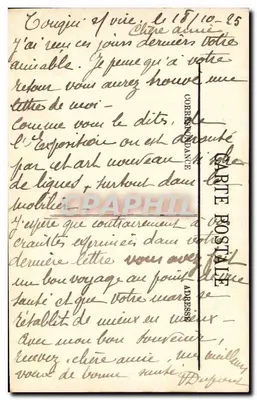 s/ Vire, le 18/10-25
Chère amie
J'ai reçu ces jours derniers votre
aimable. Je pense qu'à votre
retour vous aurez trouvé une
lettre de moi -
Comme vous le dites, de
l'Exposition on est dérouté
par cet art nouveau
de lignes, surtout dans le
mobilier.
J'espère que contrairement à vos
craintes exprimées dans votre
dernière lettre vous avez fait
un bon voyage au point de vue
santé et que votre mari se
rétablit de mieux en mieux -
Avec mon bon souvenir,
recevez, chère amie, mes meilleurs
vœux de bonne santé
Dupont
CARTE POSTALE
CORRESPONDANCE
ADRESSE
CPAPHIL